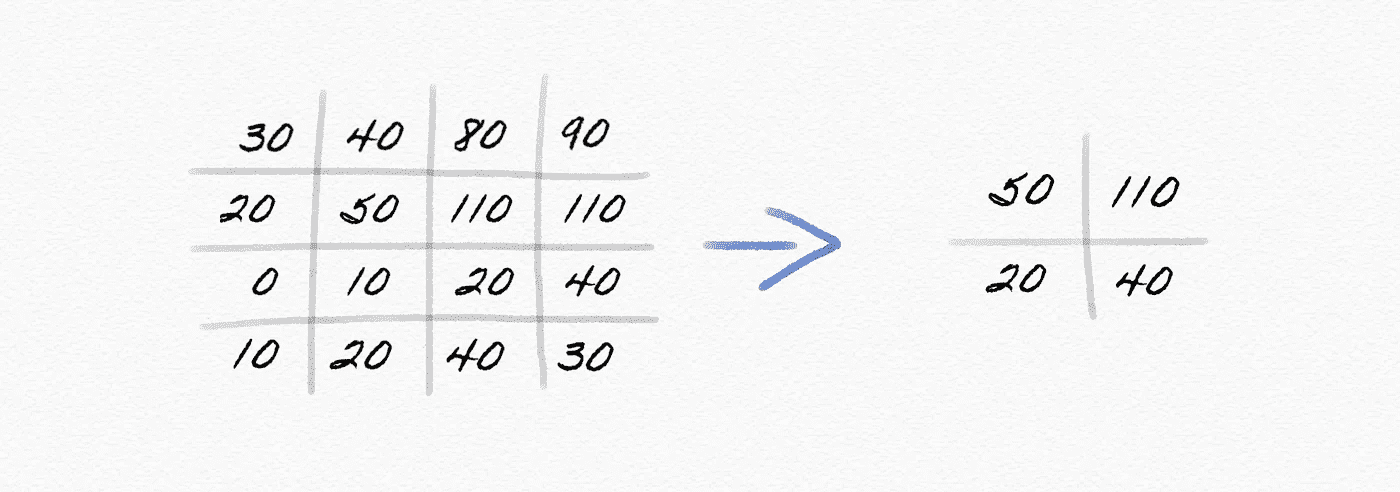 30 40 80 90
20 50 110 110
0 10 20 40
10 20 40 30
50 110
20 40